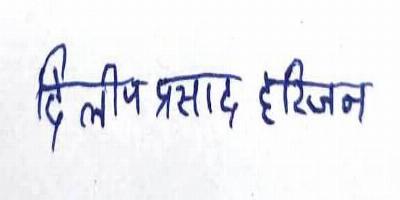 दिलीप प्रसाद हरिजन